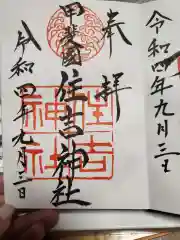 令和四年九月三
奉拝
甲斐國
住吉神社
住吉
神社
令和四年九月三日